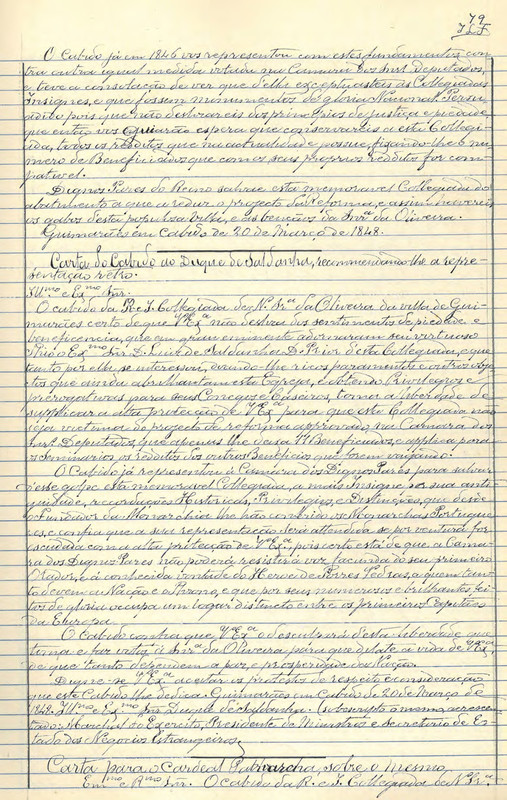 79
O Cabido já em 1846 vos representou com estes fundamentos con-
tra outra igual medida votada na Camara dos Snrs Deputados,
e teve a consolação de ver que d'elle exceptuasteis as Collegiadas
Insignes, e que fossem monumentos de gloria Nacional. Persu-
adido pois que não deslisareis dos principios de justiça e piedade,
que então vos guiarão espera que conservareis a esta Collegi-
ada, todos os redditos que na actualidade possue, fixando-lhe o nu-
mero de Beneficiados que com os seus proprios redditos for com-
pativel.
Dignos Pares do Reino salvae esta memoravel Collegiada do
abatimento a que a reduz o projecto da Reforma, e assim mereceis
os gabos desta populosa Villa, e as bençãos da Snrª da Oliveira.
Guimarães em Cabido de 20 de Março de 1848.
Carta do Cabido ao Duque de Saldanha, recommendando-lhe a repre-
sentação retro.
Illmo e Exmo Snr.
O cabido da R. e I. Collegiada de N. Srª da Oliveira da villa de Gui-
marães certo de que Vª Exª não deslisa dos sentimentos de piedade e
beneficencia, que em grau eminente adornaram seu virtuoso
Thio o Exmo Snr. D. Luiz de Saldanha D. Prior desta Collegiada, e que
tanto por ella se interessou, dando-lhe ricos paramentos e outros obje-
ctos que ainda abrilhantam esta Egreja, e obtendo Privilegios e
prerogativas para seus Conegos e Caseiros, toma a liberdade de
supplicar a alta protecção de Vª Exª para que esta Collegiada não
seja victima do projecto de reforma approvado na Camara dos
Snrs Deputados, que apenas lhe deixa 11 Beneficiados, e applica para
os Seminarios os redditos dos outros Beneficios que forem vagando.
O Cabido já representou á Camara dos Dignos Pares para salvar
d'esse golpe esta memoravel Collegiada, a mais Insigne por sua anti-
guidade, recordações Historicas, Privilegios, e Distincções, que desde
o Fundador da Monarchia lhe hão conferido os Monarchas Portugue-
zes, e confia que a sua representação será attendida se porventura for
escudada com a alta protecção de Vª Exª, pois certo está de que a Cama-
ra dos Dignos Pares não poderá resistir á voz facunda do seu primeiro
Orador, e á conhecida vontade do Heroe de Torres Vedras, a quem tan-
to devem a Nação e o Throno, e que por seus numerosos e brilhantes fei-
tos de gloria occupa um logar distincto entre os primeiros Capitães
da Europa.
O Cabido confia que Vª Exª o desculpará desta liberdade que
toma e faz votos á Snrª da Oliveira para que dilate a vida de Vª Exª,
de que tanto dependem a paz, e prosperidade da Nação.
Digne-se Vª Exª acceitar os protestos de respeito e consideração
que este Cabido lhe dedica. Guimarães em Cabido de 20 de Março de
1848. Illmo e Exmo Snr. Duque de Saldanha. (subscripto o mesmo accrescen-
tado: Marechal do Exercito, Presidente de Ministros e Secretario de Es-
tado dos Negocios Estrangeiros)
Carta para o Cardeal Patriarcha, sobre o mesmo
Emmo e Rmo Snr. O cabido da R. e I. Collegiada de N. Srª